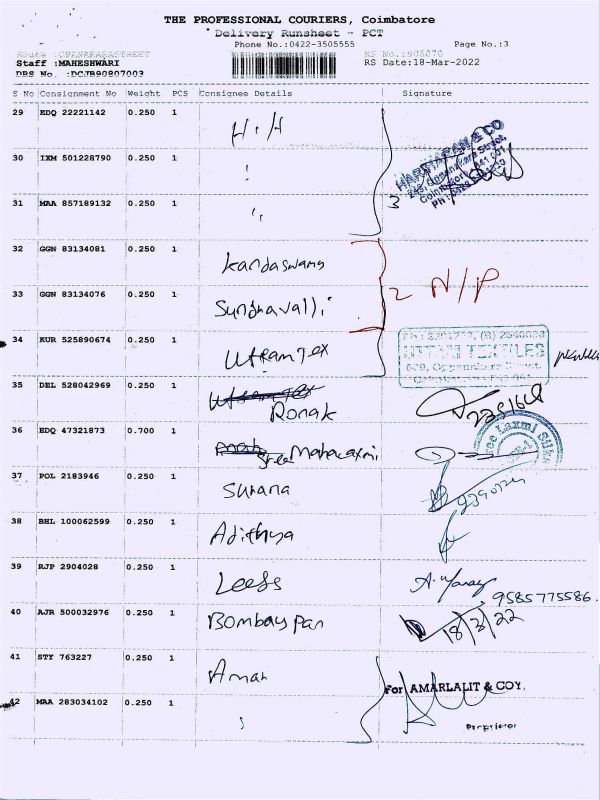 THE PROFESSIONAL COURIERS, Coimbatore
Delivery Runsheet - PCT
Phone No.:0422-3505555 Page No.:3
Staff :MAHESHWARI RS Date:18-Mar-2022
DRS No. :DCJB90807003
S No Consignment No Weight PCS Consignee Details Signature
29 EDQ 22221142 0.250 1 H.H
30 IXM 501228790 0.250 1
31 MAA 857189132 0.250 1 " 3
HASTIARAM & CO
32 GGN 83134081 0.250 1 Kandaswamy
33 GGN 83134076 0.250 1 Sundravalli 2 N/P
34 KUR 525890674 0.250 1 Uttam Tex
UTTAM TEXTILES
509, Oppanakara Street,
35 DEL 528042969 0.250 1 Ronak
36 EDQ 47321873 0.700 1 Shree Mahalaxmi
Laxmi Silks
37 POL 2183946 0.250 1 Surana
38 BHL 100062599 0.250 1 Adithya
39 RJP 2904028 0.250 1 Leess 9585775586.
40 AJR 500032976 0.250 1 Bombay Pan 18/3/22
41 STY 763227 0.250 1 Aman
For AMARLALIT & COY.
42 MAA 283034102 0.250 1
Proprietor